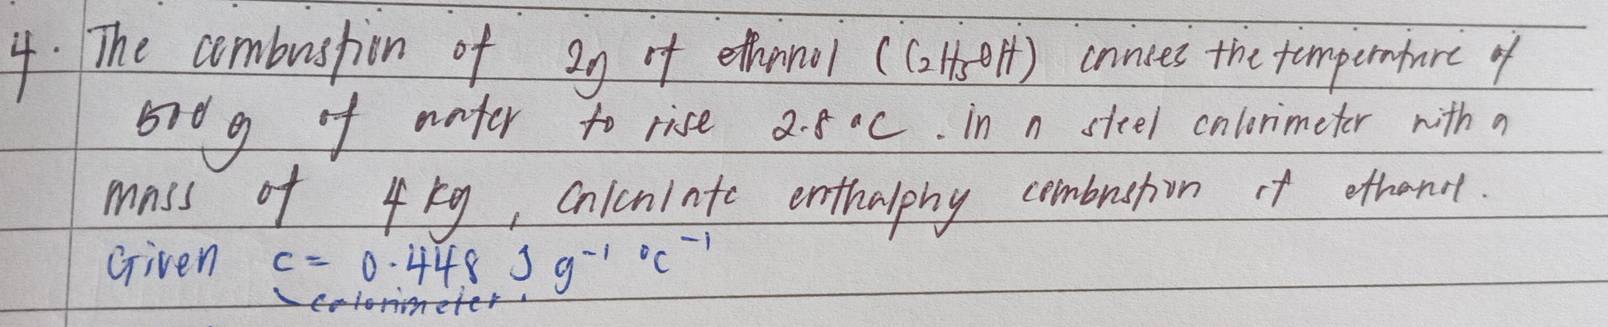 4. The combustion of 2g of ethanol (C₂H₅OH) causes the temperature of
500 g of water to rise 2.8 °C. in a steel calorimeter with a
mass of 4 kg, calculate enthalphy combustion of ethanol.
Given c = 0.448 J g⁻¹ °C⁻¹
calorimeter.